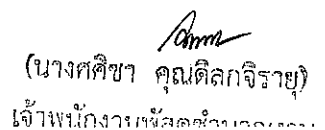 (นางศศิขา คุณดิลกจิรายุ)
เจ้าพนักงานพัสดุชำนาญงาน